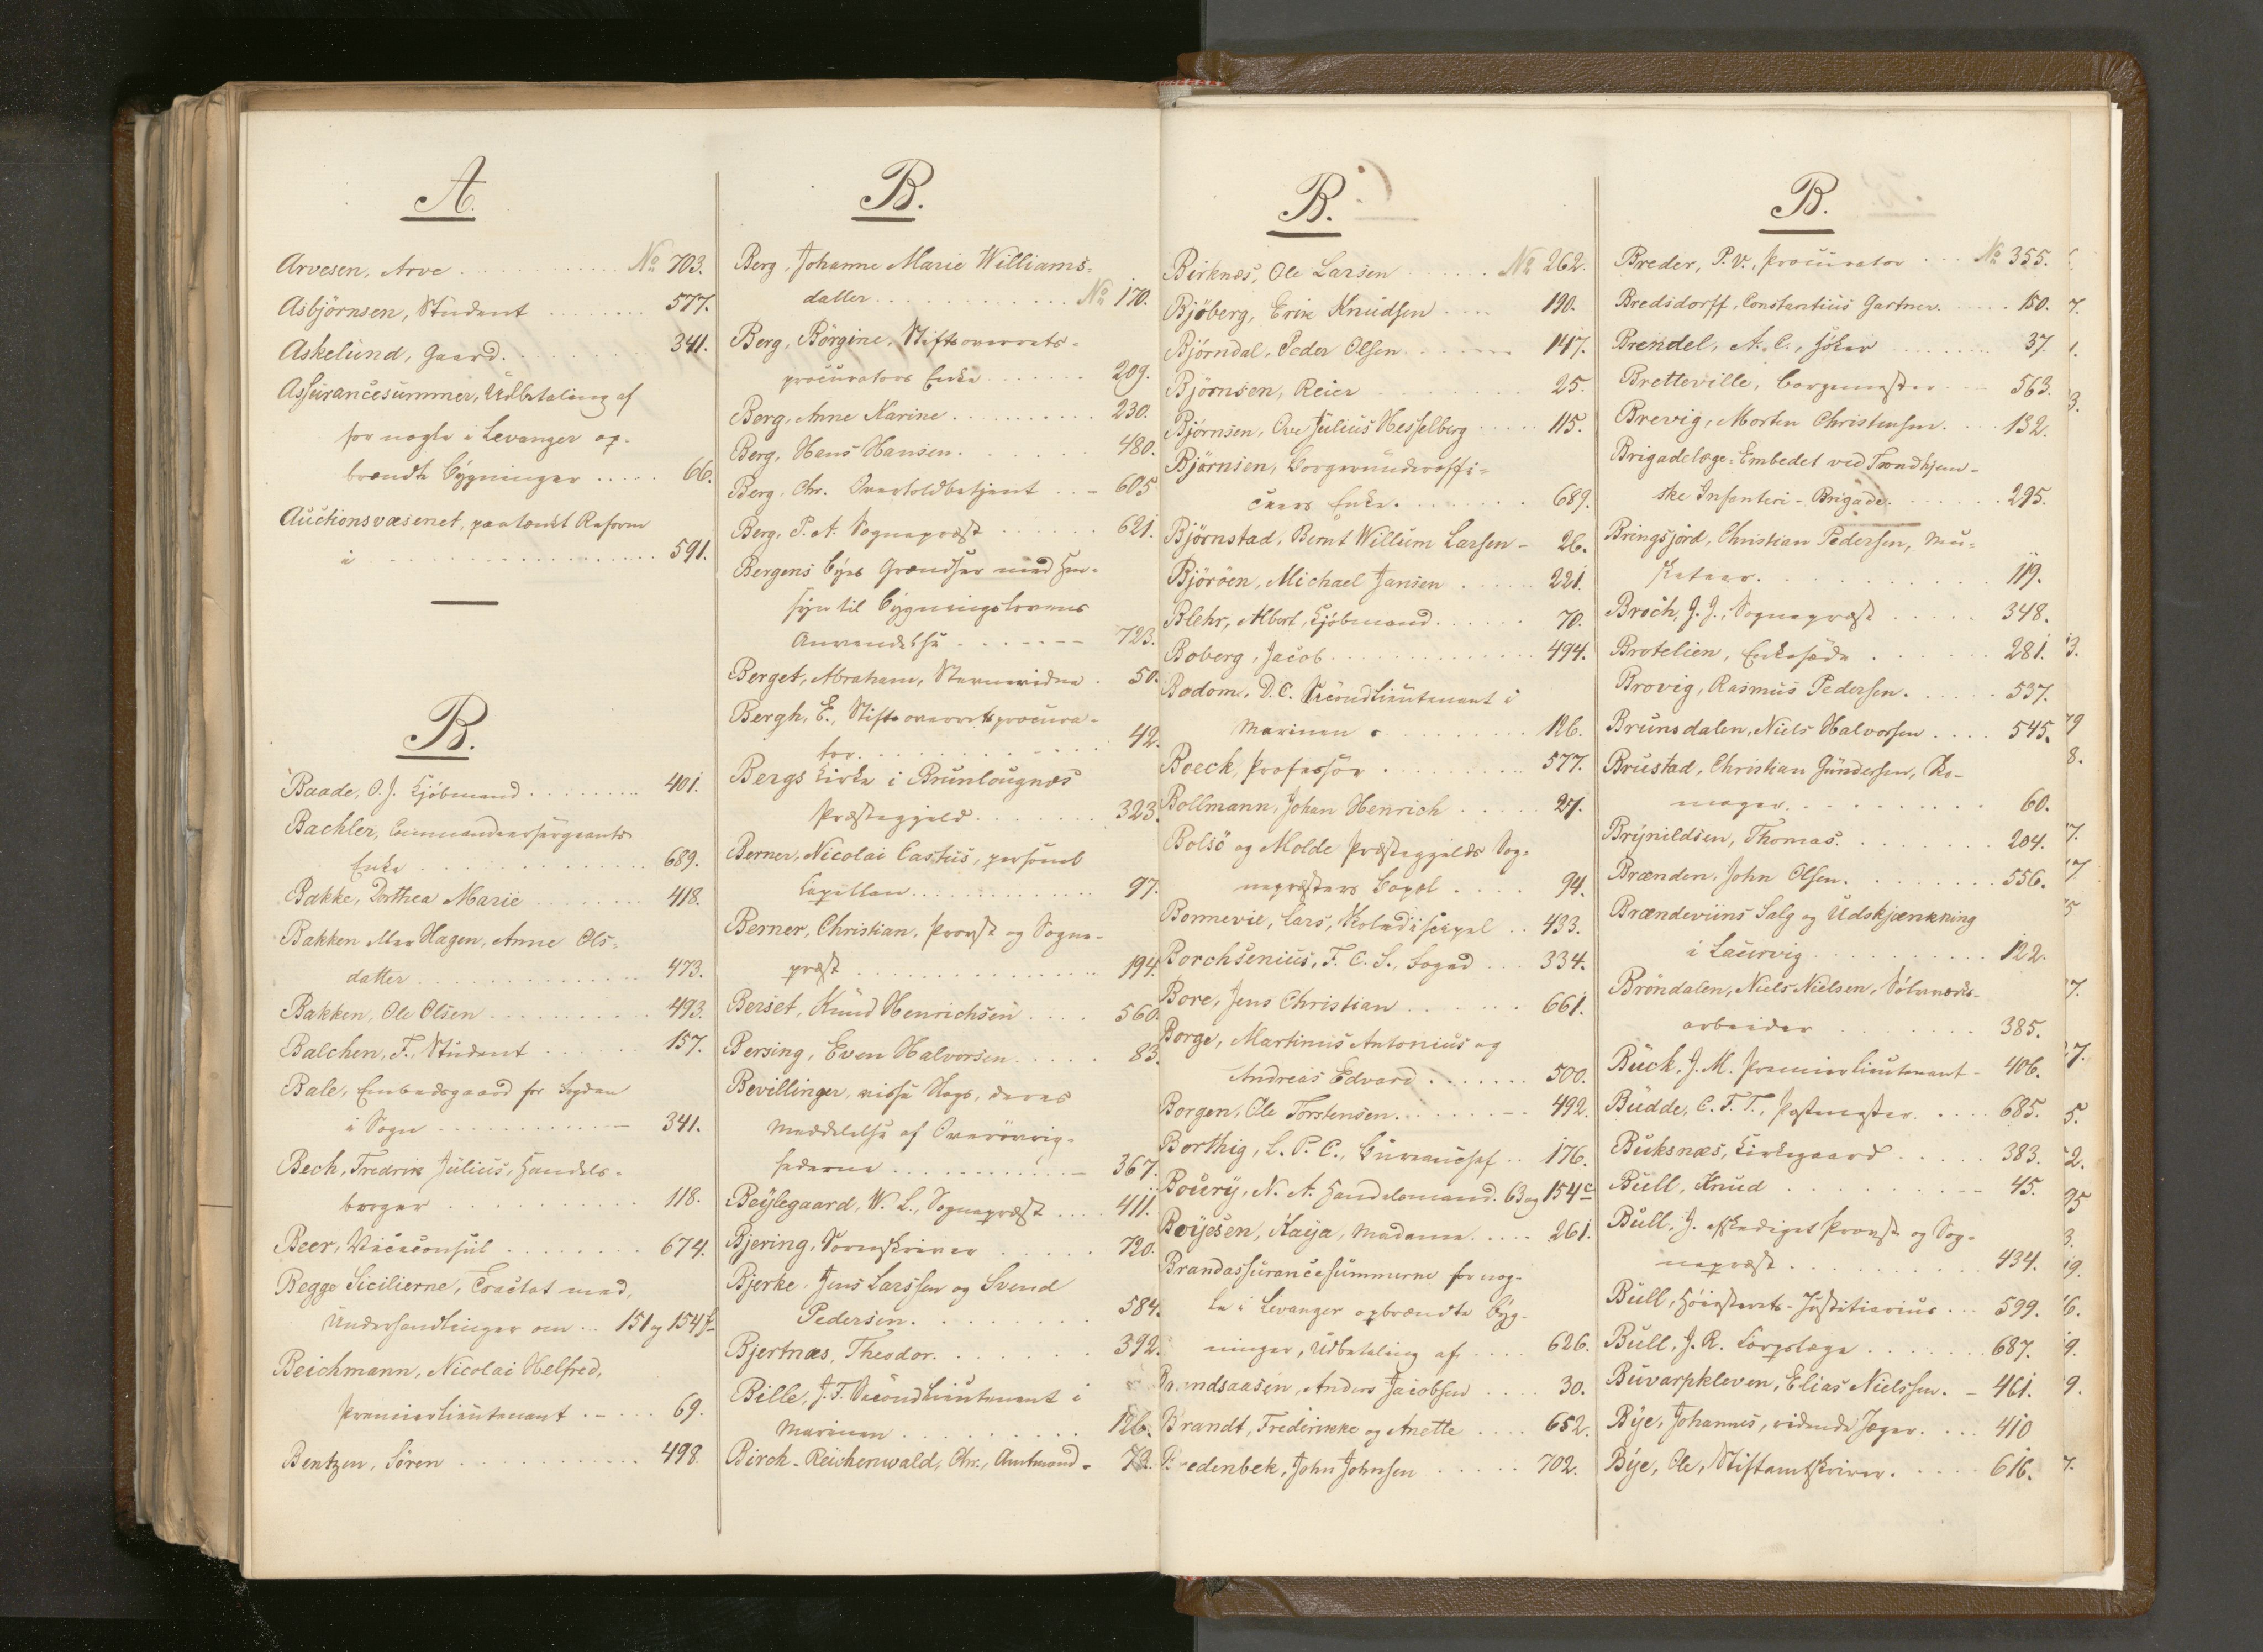 A.
Arvesen, Arve . . . . . . . . . . . No 703.
Asbjörnsen, Student . . . . . . . . 577.
Askelund, Gaard . . . . . . . . 341.
Assurancesummer, Udbetaling af
for nogle i Levanger op-
brændte Bygninger . . . . . 66.
Auctionsvæsenet, paatænkt Reform
i . . . . . . . . . . . . . . . . . 591.
B.
Baade, O. J. Kjöbmand . . . . . . . . 401.
Bachler, Commandeersergeants
Enke . . . . . . . . . . . . 689.
Bakke, Dorthea Marie . . . . . . . . 418.
Bakken eller Hagen, Anne Ols-
datter . . . . . . . . . . . . . 473.
Bakken, Ole Olsen . . . . . . . . . 493.
Balchen, F., Student . . . . . . 157.
Bale, Embedsgaard for Fogden
i Sogn . . . . . . . . . . . . 341.
Bech, Fredrik Julius, Handels-
borger . . . . . . . . . . . 118.
Beer, Viceconsul . . . . . . . . 674.
Begge Sicilierne, Tractat med,
Underhandlinger om . . . 151 og 154 f
Beichmann, Nicolai Helfred,
Premierlieutenant . . . . . 69.
Bentzen, Sören . . . . . . . . . . . 498.
B.
Berg, Johanne Marie Williams-
datter . . . . . . . . . . . . . No 170.
Berg, Börgine, Stiftsoverrets-
procurators Enke . . . . . . . 209.
Berg, Anne Karine . . . . . . . . . . 230.
Berg, Hans Hansen . . . . . . . 480.
Berg, Chr. Overtoldbetjent . . . 605
Berg, P. A. Sognepræst . . . . . . 621.
Bergens Byes Grændser med Hen-
syn til Bygningslovens
Anvendelse . . . . . . . 723.
Berget, Abraham, Stevneridne . 50.
Bergh, E., Stiftsoverretsprocura-
tor . . . . . . . . . . . . . 42.
Bergs Kirke i Brunlougnæs
Præstegjeld . . . . . . . . 323.
Berner, Nicolai Castus, personel
Capellan . . . . . . . . . . . . . 97.
Berner, Christian, Provst og Sogne-
præst . . . . . . . . . . . . . . . 194.
Berset, Knud Henrichsen . . . . 560.
Bersing, Even Halvorsen . . . . . 83.
Bevillinger, visse Slags, deres
Meddelelse af Overövrig-
hederne . . . . . . . . . . . 367.
Beylegaard, W. L., Sognepræst . . . . 411.
Bjering, Sorenskriver . . . . . . 720.
Bjerke, Jens Larssen og Svend
Pedersen . . . . . . . . 584.
Bjertnæs, Theodor . . . . . . . 392.
Bille, J. F. Secondlieutenant i
Marinen . . . . . . . . . . 126.
Birch-Reichenwald, Chr., Amtmand - 72.
B.
Birknæs, Ole Larsen . . . . . . No 262.
Bjöberg, Erik Knudsen . . . . 190.
Bjørndal, Peder Olsen . . . . . . . 147.
Björnsen, Reier . . . . . . . . 25.
Bjørnsen, Ove Julius Hesselberg . . . . . 115.
Bjørnsen, Borgerunderoffi-
ceers Enke . . . . . . . . 689.
Björnstad, Bernt Willum Larsen - 26.
Björöen, Michael Jansen . . . . . 221.
Blehr, Albert, Kjöbmand . . . . . . 70.
Boberg, Jacob . . . . . . . . . . . . . 494.
Bodom, D. C. Secondlieutenant i
Marinen . . . . . . . . . . 126.
Boeck, Professor . . . . . . . . . 577.
Bollmann, Johan Henrich . . . . . 27.
Bolsö og Molde Præstegjelds Sog-
nepræsters Capel . . . . 94.
Bonnevie, Lars, Skoledisipel . . 433.
Borchsenius, F. C. S., Foged . . . 334.
Bore, Jens Christian . . . . . . . 661.
Borge, Martinus Antonius og
Andreas Edvard . . . . . . . 500.
Borgen, Ole Torstensen . . . . . . . . 492.
Borthig, L. P. C., Bureauchef . . 176.
Boury, N. A. Handelsmand. 63 og 154 c
Boyesen, Kaja, Madame . . . . . 261.
Brandassurancesummerne for nog-
le i Levanger opbrændte Byg-
ninger, Udbetaling af . . . 626.
Brandsaasen, Anders Jacobsen . . . . 30.
Brandt, Frederikke og Anette . . . . 652.
Bredenbek, John Johnsen . . . . . 702.
B.
Breder, P. V., Procurator . . . No 355.
Bredsdorff, Constantius Gartner . . . . 150.
Brendel, A. C., . . . . . . . . 37.
Bretteville, Borgemester . . . 563.
Brevig, Morten Christensen . . . . 132.
Brigadelæge-Embedet ved Trondhjem-
ske Infanteri-Brigade . . . . . . . 295.
Bringsjord, Christian Pedersen, Mu-
sketeer . . . . . . . . . . . . 119.
Broch, J. J., Sognepræst . . . . . 348.
Brotelien, Enkesæde . . . . . . 281.
Brovig, Rasmus Pedersen . . . . . . 537.
Brunsdalen, Niels Halvorsen . . . . 545.
Brustad, Christian Gundersen, Sko-
mager . . . . . . . . . . 60.
Brynildsen, Thomas . . . . . . . . 204.
Brænden, John Olsen . . . . . . . . 556.
Brændeviins Salg og Udskjænkning
i Laurvig . . . . . . . . . . 122.
Bröndalen, Niels Nielsen, Sölvværks-
arbeider . . . . . . . . 385.
Buck, J. M. Premierlieutenant - 406.
Budde, C. F. T., Postmester . . . . . 685.
Buksnæs, Kirkegaard . . . . . 383.
Bull, Knud . . . . . . . . . . 45.
Bull, J. afskediget Provst og Sog-
nepræst . . . . . . . . . . 434.
Bull, Höiesterets-Justitiarius . . . 599.
Bull, J. R. Corpslæge . . . . . . . 687.
Buvarpkleven, Elias Nielssen . - 461.
Bye, Johannes, ridende Jæger . . . . 410
Bye, Ole, Stiftamtskriver . . . . . . 616.